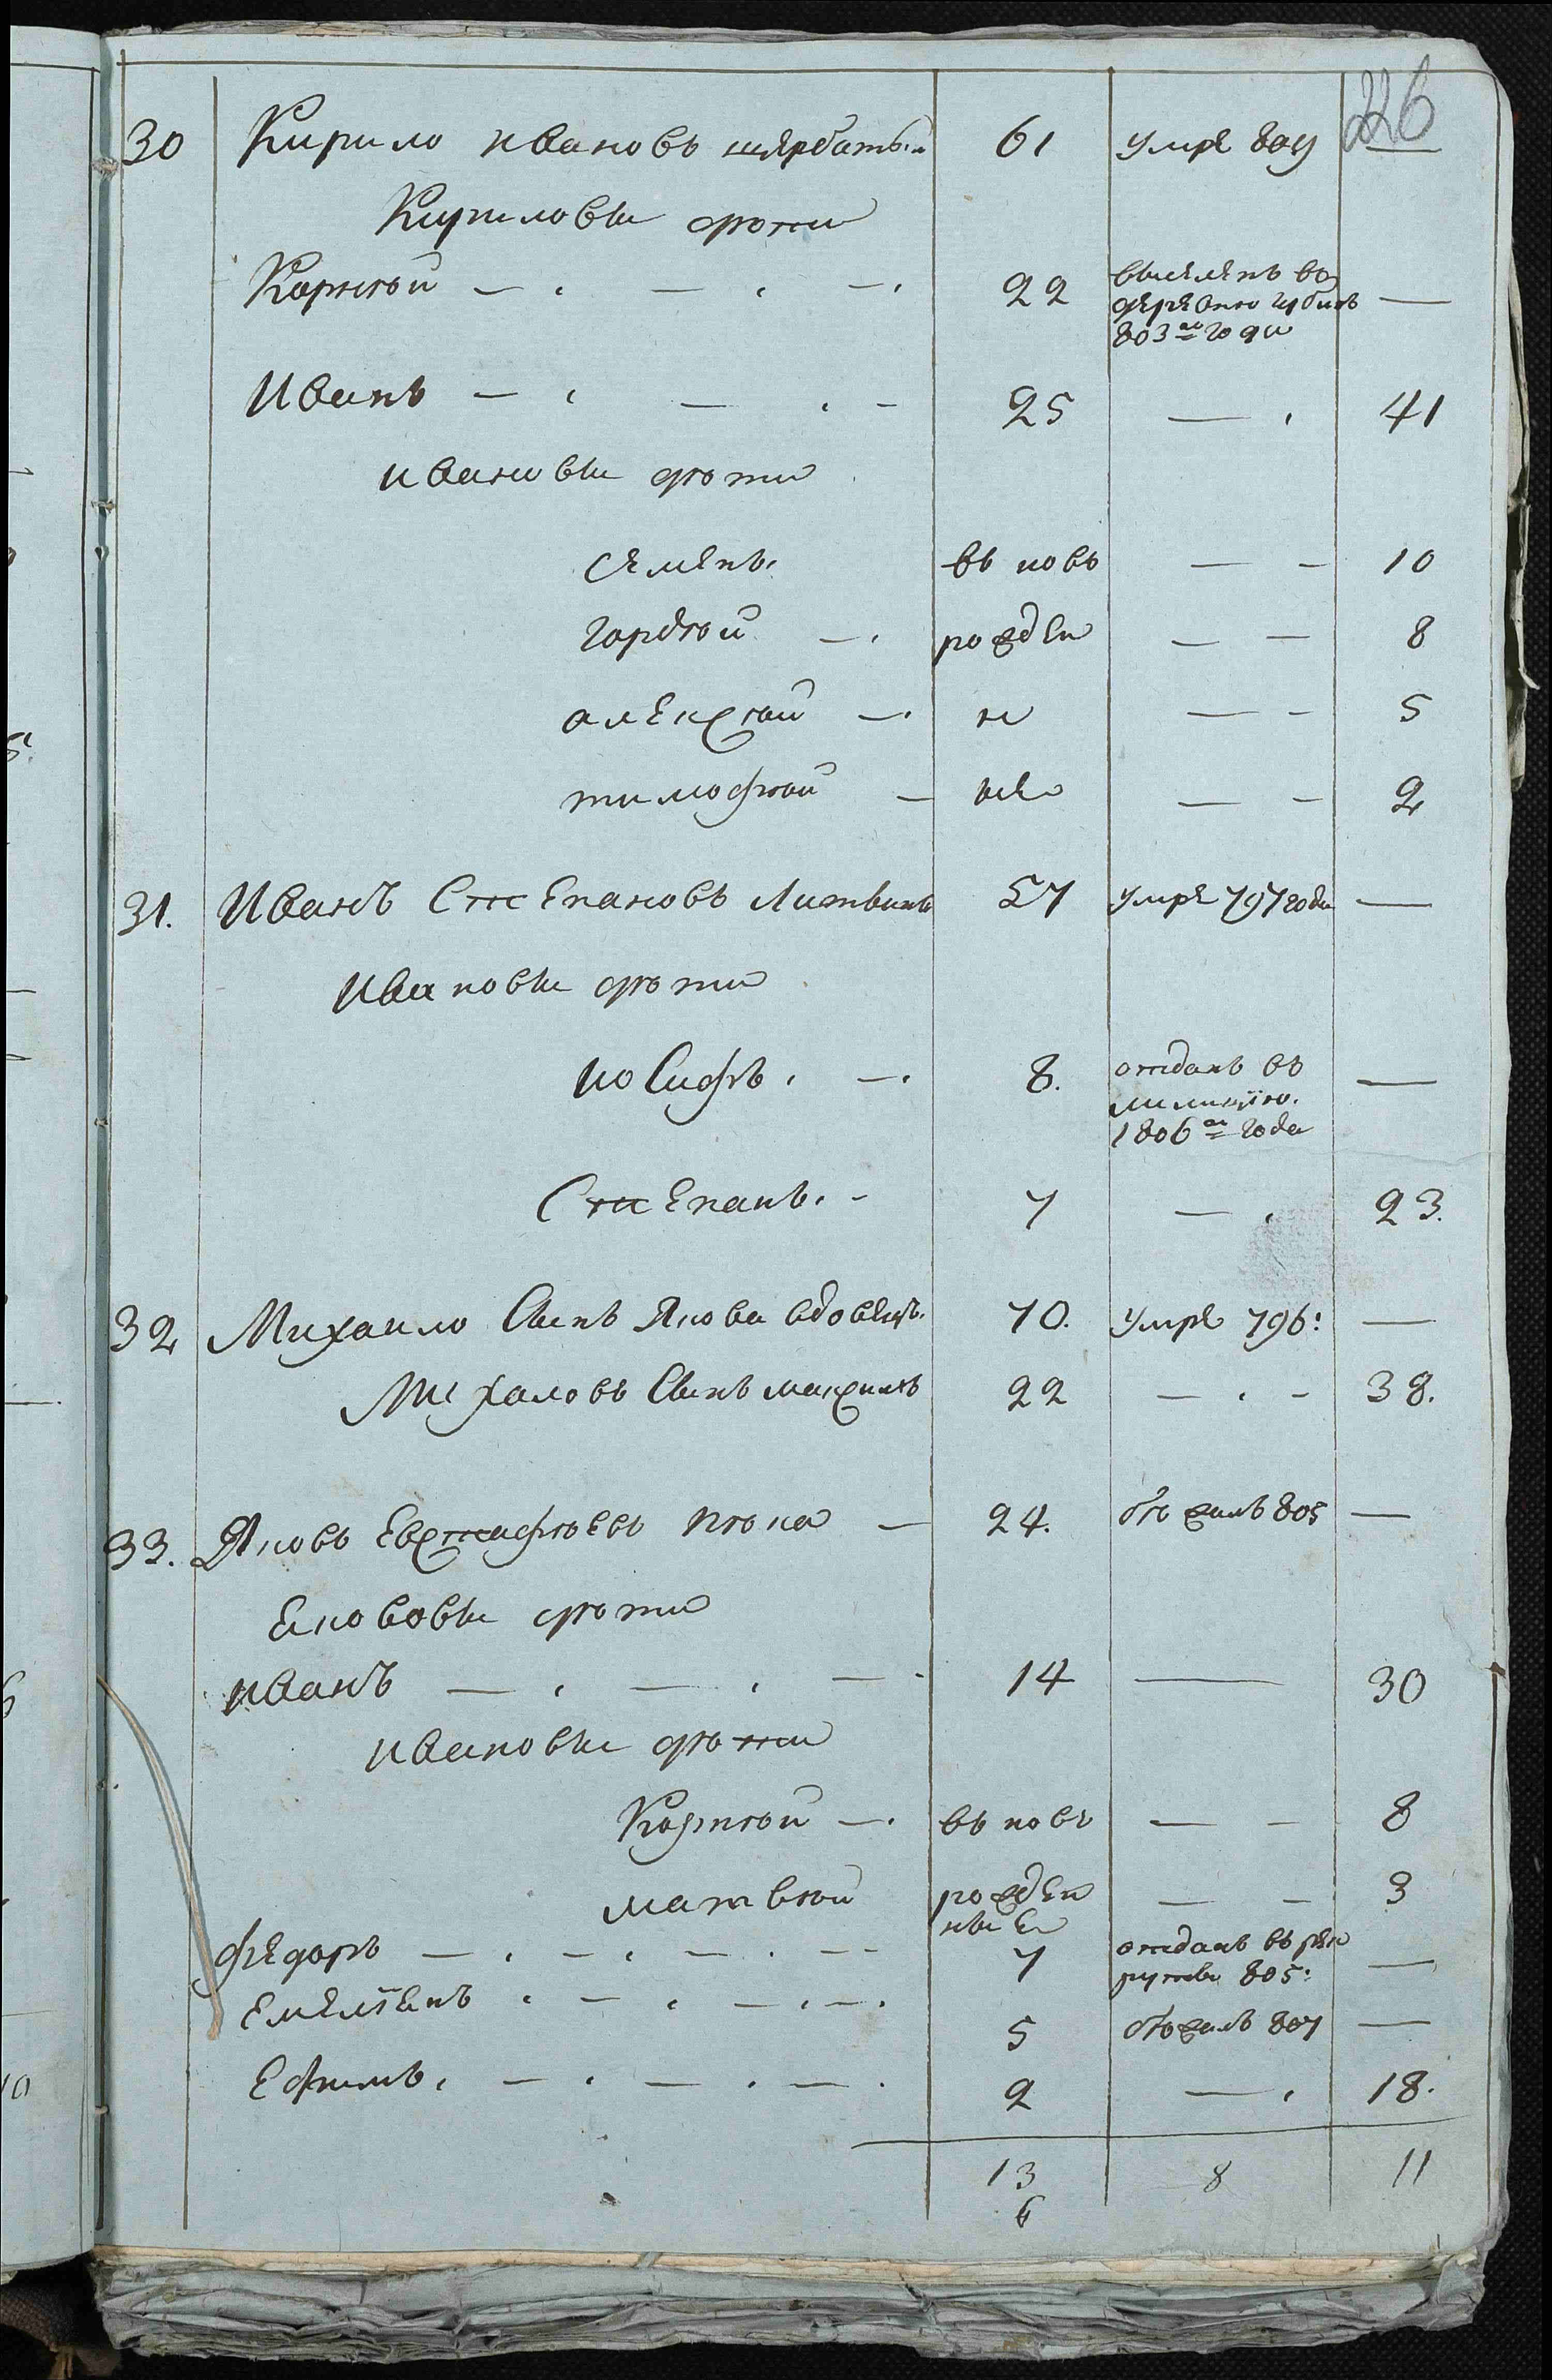 226
30 Кирило ивановъ щербатыи 61 умре 809 —
Кириловы дѣти
Корнѣй — . — . — . 22 выселенъ во
деревню
803го года —
Иванъ — . — . — 25 — . 41
ивановы дѣти
семенъ. въ новь — — 10
гордѣй — . рожден — — 8
алексѣй — . н — — 5
тимофѣй — ые — — 2
31. Иванъ Степановъ Литвинъ 57 умре 797 года —
Ивановы дѣти
иосифъ . — . 8. отданъ въ
милицїю.
1806го года —
Степанъ. - 7 — . 23.
32 Михаило Сынъ Якова вдовенъ. 70. умре 796: —
Михаловъ Сынъ максимъ 22 — . - 38.
33. Яковъ Евстафѣевъ — 24. бѣжалъ 805 —
Еков�овы дѣти
иванъ — . — . — . 14 — 30
ивановы дѣти
Корнѣй — . въ новь — — 8
матвѣй рожден — — 3
ные
Федоръ — . — . — . — 7 отданъ въ рек
руты 805: —
Емелїенъ . — . — . — . 5 бѣжалъ 807 —
Ефимъ. — . — . — . 2 — . 18.
13 8 11
6